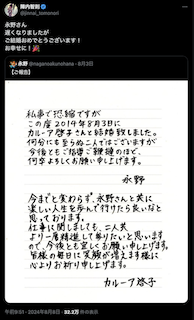 陣内智則
@jinnai_tomonori
永野さん
遅くなりましたが
ご結婚おめでとうございます！
お幸せに！
永野 @naganosekunohana・8月3日
【ご報告】
私事で恐縮ですが
この度2019年8月3日に
カルーア啓子さんと結婚致しました。
何分にも至らぬ二人ではございますが
今後ともご指導ご鞭撻のほど、
何卒よろしくお願い申し上げます。
永野
今までと変わらず、永野さんと共に
楽しい人生を歩んで行けたら良いなと
思っております。
仕事に関しましても、二人共
より一層精進して参りたいと思います
ので、今後とも宜しくお願い申し上げます。
皆様の毎日に笑顔が増えます様に
心よりお祈り申し上げます。
カルーア啓子
2024年8月8日・32.2万 件の表示